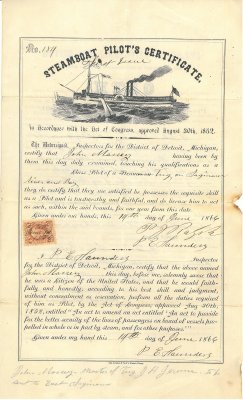 No. 189
STEAMBOAT PILOT'S CERTIFICATE.
First Issue
In Accordance with the Act of Congress, approved August 30th, 1852.
The Undersigned, Inspectors for the District of Detroit, Michigan,
certify that John Massey having been by
them this day duly examined, touching his qualifications as a
Class Pilot of a
they do certify that they are satisfied he possesses the requisite skill
as a Pilot and is trustworthy and faithful, and do license him to act
as such, within the said bounds, for one year from this date.
Given under our hands, this 14th day of June 1864
P. E. Saunders
I, P. E. Saunders Inspector
for the District of Detroit, Michigan, certify that the above named
John Massey this day, before me, solemnly swore that
he was a citizen of the United States, and that he would faith-
and honestly, according to his best skill and judgment,
without concealment or reservation, perform all the duties required
of him as Pilot, by the Act of Congress, approved August 30th,
1852, entitled "An act to amend an act entitled 'An act to provide
for the better security of the lives of passengers on board of vessels pro-
pelled in whole or in part by steam, and for other purposes.'"
Given under my hand, this 14th day of June 1864
P. E. Saunders
John Massey